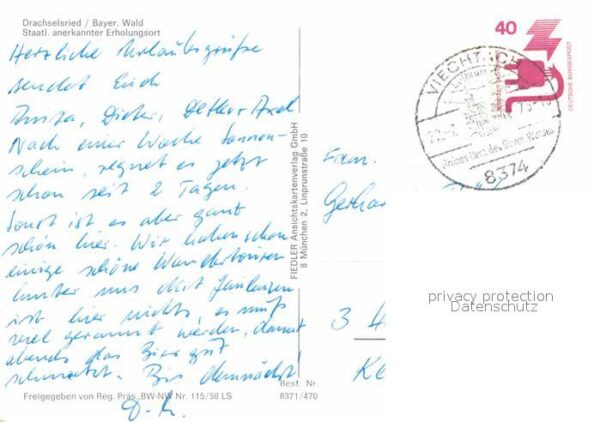 Drachselsried / Bayer. Wald
Staatl. anerkannter Erholungsort
Herzliche Urlaubsgrüße
sendet Euch
Dieter, Detlev Axel
Nach einer Woche Sonnen-
schein, regnet es jetzt
schon seit 2 Tagen.
Sonst ist es aber ganz
schön hier. Wir haben schon
einige schöne Wandertouren
hinter uns. Mit Faulenzen
ist hier nichts, es muß
viel gerannt werden, damit
abends das Bier gut
schmeckt. Bis demnächst!
FIEDLER Ansichtskartenverlag GmbH
8 München 2, Linprunstraße 10
Best. Nr.
8371/470
Freigegeben von Reg. Präs. BW-NW Nr. 115/58 LS
40
DEUTSCHE BUNDESPOST
VIECHTACH
8374
Fam.
3
privacy protection
Datenschutz